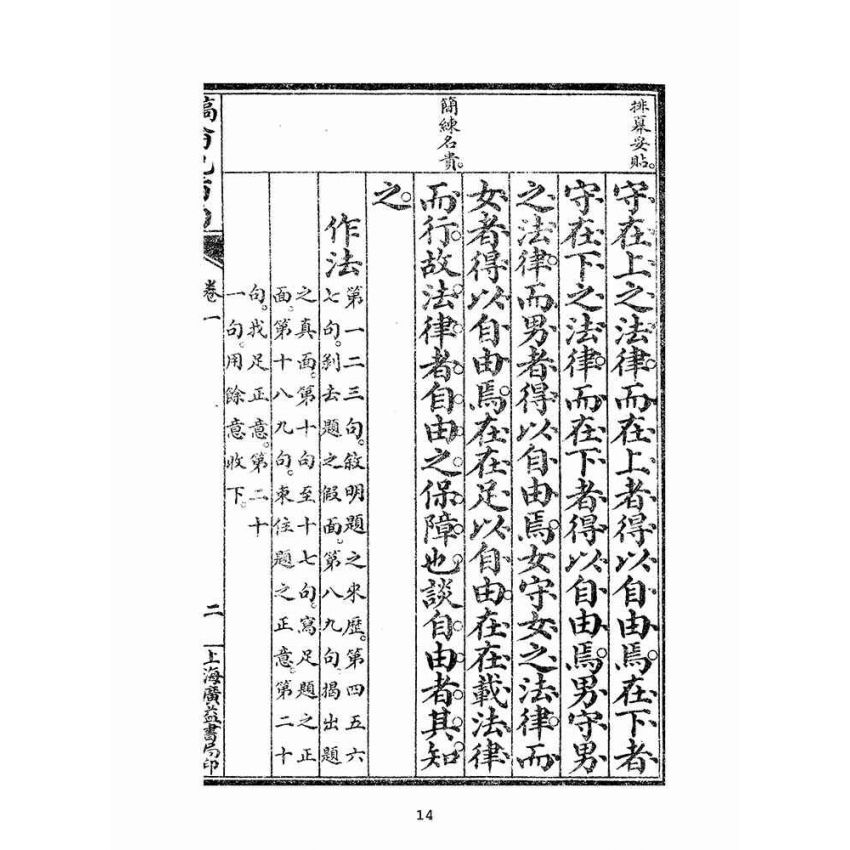 排募妥貼。
簡練名貴。
守在上之法律。而在上者得以自由焉。在下者
守在下之法律。而在下者得以自由焉。男守男
之法律。而男者得以自由焉。女守女之法律。而
女者得以自由焉。在在足以自由。在在載法律
而行。故法律者。自由之保障也。談自由者。其知
之。
作法
第一二三句。敘明題之來歷。第四五六
七句。剔去題之假面。第八九句。揭出題
之真面。第十句至十七句。寫足題之正
面。第十八九句。束住題之正意。第二十
句。找足正意。第二十
一句。用餘意收下。
卷一
二
上海廣益書局印
14